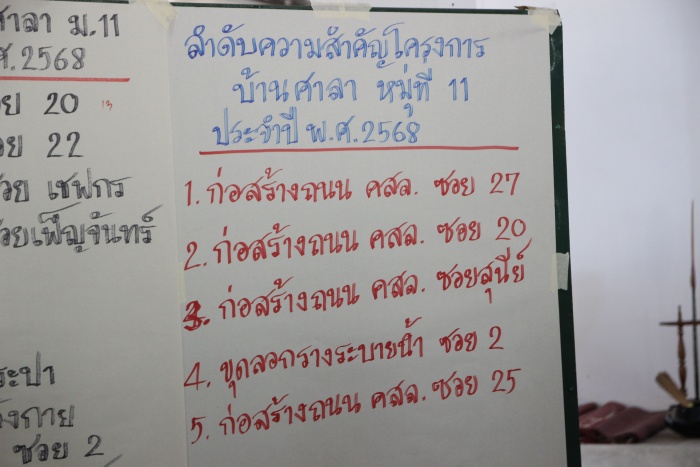 ศาลา ม.11
ศ.2568
ซอย 20 13
ซอย 22
ซอย เชฟกร
ซอยเพ็ญจันทร์
ระปา
ังกาย
ซอย 2
ลำดับความสำคัญโครงการ
บ้านศาลา หมู่ที่ 11
ประจำปี พ.ศ.2568
1. ก่อสร้างถนน คสล. ซอย 27
2. ก่อสร้างถนน คสล. ซอย 20
3. ก่อสร้างถนน คสล. ซอยสุนีย์
4. ขุดลอกรางระบายน้ำ ซอย 2
5. ก่อสร้างถนน คสล. ซอย 25